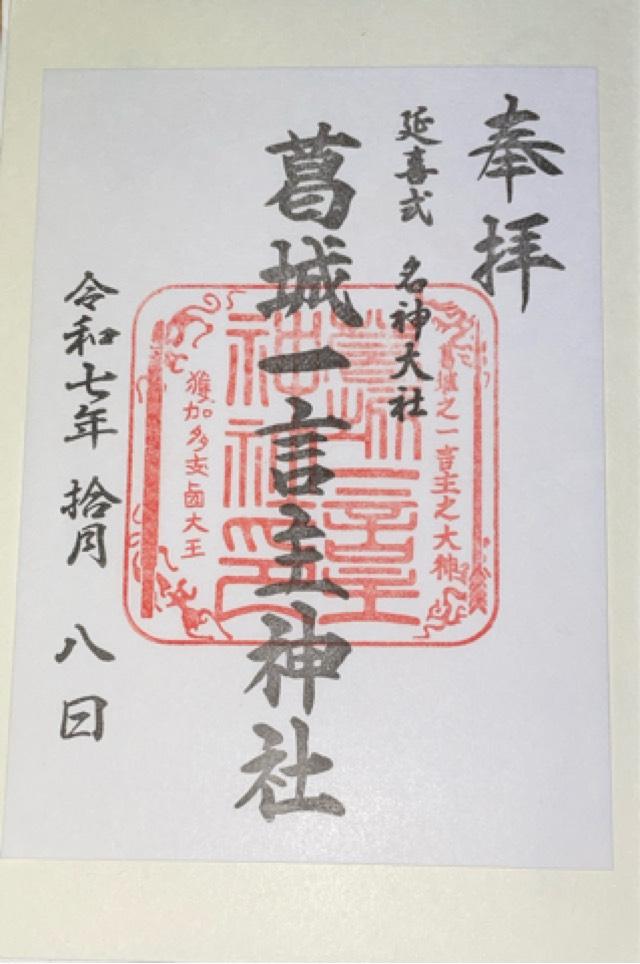 奉拝
延喜式 名神大社
葛城一言主神社
葛城之一言主之大神
獲加多支鹵大王
令和七年 拾月 八日